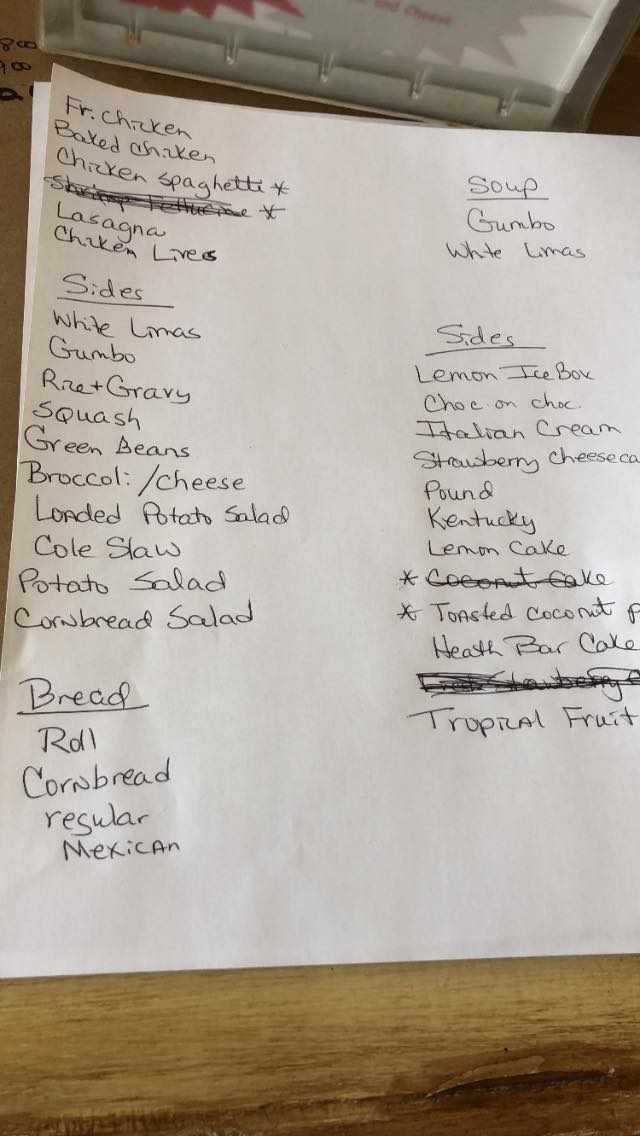 and Cheese
800
900
Fr. Chicken
Baked Chicken
Chicken Spaghetti *
Shrimp Fettucine *
Lasagna
Chicken Lives
Sides
White Limas
Gumbo
Rice + Gravy
Squash
Green Beans
Broccoli /cheese
Loaded Potato Salad
Cole Slaw
Potato Salad
Cornbread Salad
Bread
Roll
Cornbread
regular
Mexican
Soup
Gumbo
White Limas
Sides
Lemon Ice Box
Choc. on choc.
Italian Cream
Strawberry Cheeseca
Pound
Kentucky
Lemon Cake
* Coconut Cake
* Toasted Coconut P
Heath Bar Cake
Fresh Strawberry C
Tropical Fruit